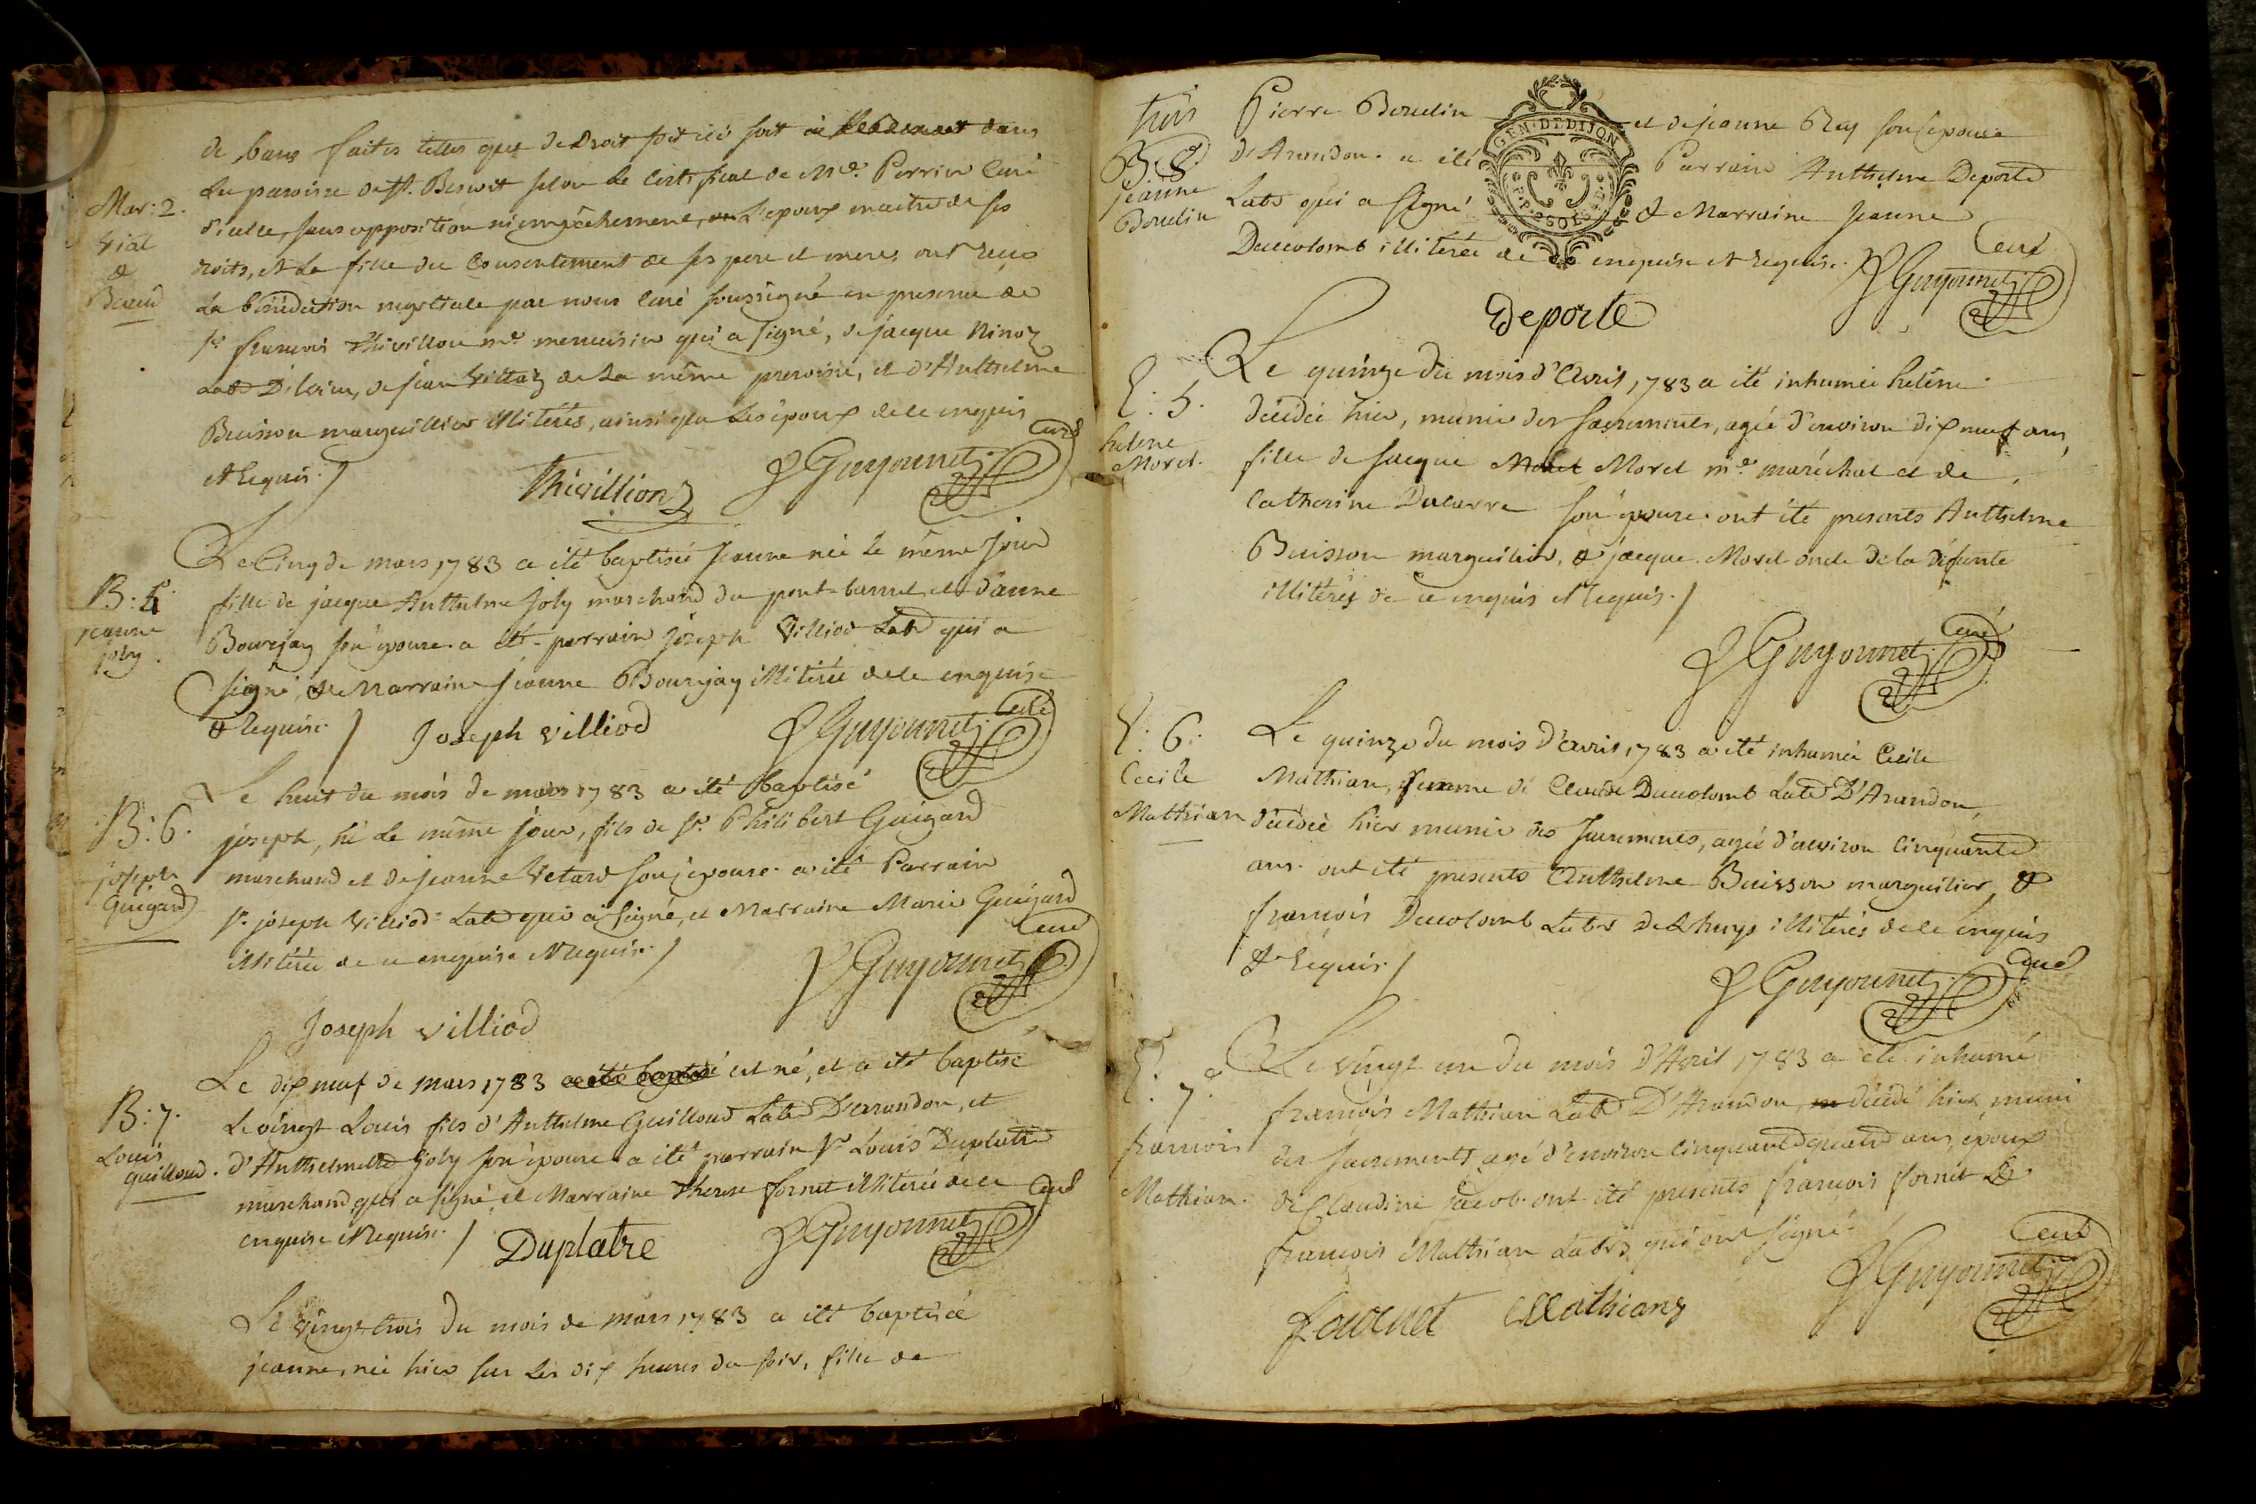 de bans faites telles que de Droit soit ici soit à dans
La paroisse de st. Benoit selon le certificat de Mre. Perrin Curé
Mar: 2.
vial
&
d'icelle, sans opposition ni empêchement, L'epoux maitre de ses
roits, et La fille du Consentement de ses pere et mere, ont reçus
La bénédiction nuptiale par nous Curé soussigné en presence de
sr. françois Thivillon me. menuisier qui a signé, de jacque
de jean de la même paroisse, et d'Anthelme
Buisson marguillier illiterés, ainsi que Les époux de ce enquis
et Requis. /
Thivillion
Guyonnet Curé
Le Cinq de mars 1783 a été baptisée Jeanne née le même jour
B: 5.
jeanne
joly.
fille de jacque Anthelme Joly marchand du et d'anne
Bourjay son épouse. a été parrain joseph Villiod Labr qui a
signé, & Marraine jeanne Bourjay illiterée de ce enquise
& Requise. /
Joseph villiod
Guyonnet Curé
Le huit du mois de mars 1783 a été baptisé
B: 6.
joseph
Guigard
joseph, né le même jour, fils de sr. Philibert Guigard
marchand et de jeanne Vetard son épouse. a été Parrain
sr. joseph Villiod Labr qui a signé, et Marraine Marie Guigard
illiterée de ce enquise & Requise. /
Guyonnet Curé
Joseph villiod
Le dix neuf de mars 1783 a été baptisé est né, et a été baptisé
B: 7.
Louis
guilloud.
Le vingt Louis fils d'Anthelme Guilloud Labr D'arandon, et
d'Anthelmette joly son épouse. a été parrain sr. Louis Duplatre
marchand qui a signé, et Marraine Therese fornet illiterée de ce
enquise & Requise. /
Duplatre
Guyonnet Curé
Le vingt trois du mois de mars 1783 a été baptisée
jeanne, née hier sur Les dix heures du soir, fille de
trois
B: 8.
jeanne
Boudin
Pierre Boudin et de jeanne Rey son épouse
GEN. DE DIJON
d'Arandon. a été Parrain Anthelme Deporte
Labr qui a signé & Marraine Jeanne
Ducolomb illiterée de ce enquise et requise.
Guyonnet Curé
Deporte
Le quinze du mois d'Avril 1783 a été inhumée helène
S: 5.
helene
Morel.
décédée hier, munie des sacrements, agée d'environ dix neuf ans,
fille de jacque Morel Morel me. maréchal et de
Catherine Ducarre son épouse. ont été presents Anthelme
Buisson marguillier, & jacque Morel oncle de la défunte
illiterés de ce enquis & requis. /
Guyonnet Curé
S: 6.
Cecile
Mathian
Le quinze du mois d'avril 1783 a été inhumée Cecile
Mathian, femme de Claude Ducolomb Labr D'Arandon,
décédée hier munie des sacrements, agée d'environ Cinquante
ans. ont été presents Anthelme Buisson marguillier, &
françois Ducolomb Labrs illiterés de ce enquis
& Requis. /
Guyonnet Curé
S: 7.
francois
Mathian.
Le vingt un du mois d'Avril 1783 a été inhumé
françois Mathian Labr D'Arandon, décédé hier, muni
des sacrements, agé d'environ Cinquante quatre ans, époux
de Claudine Jacob. ont été presents françois fornet &
francois Mathian Labrs, qui ont signé.
Guyonnet Curé
Fournet
Mathian